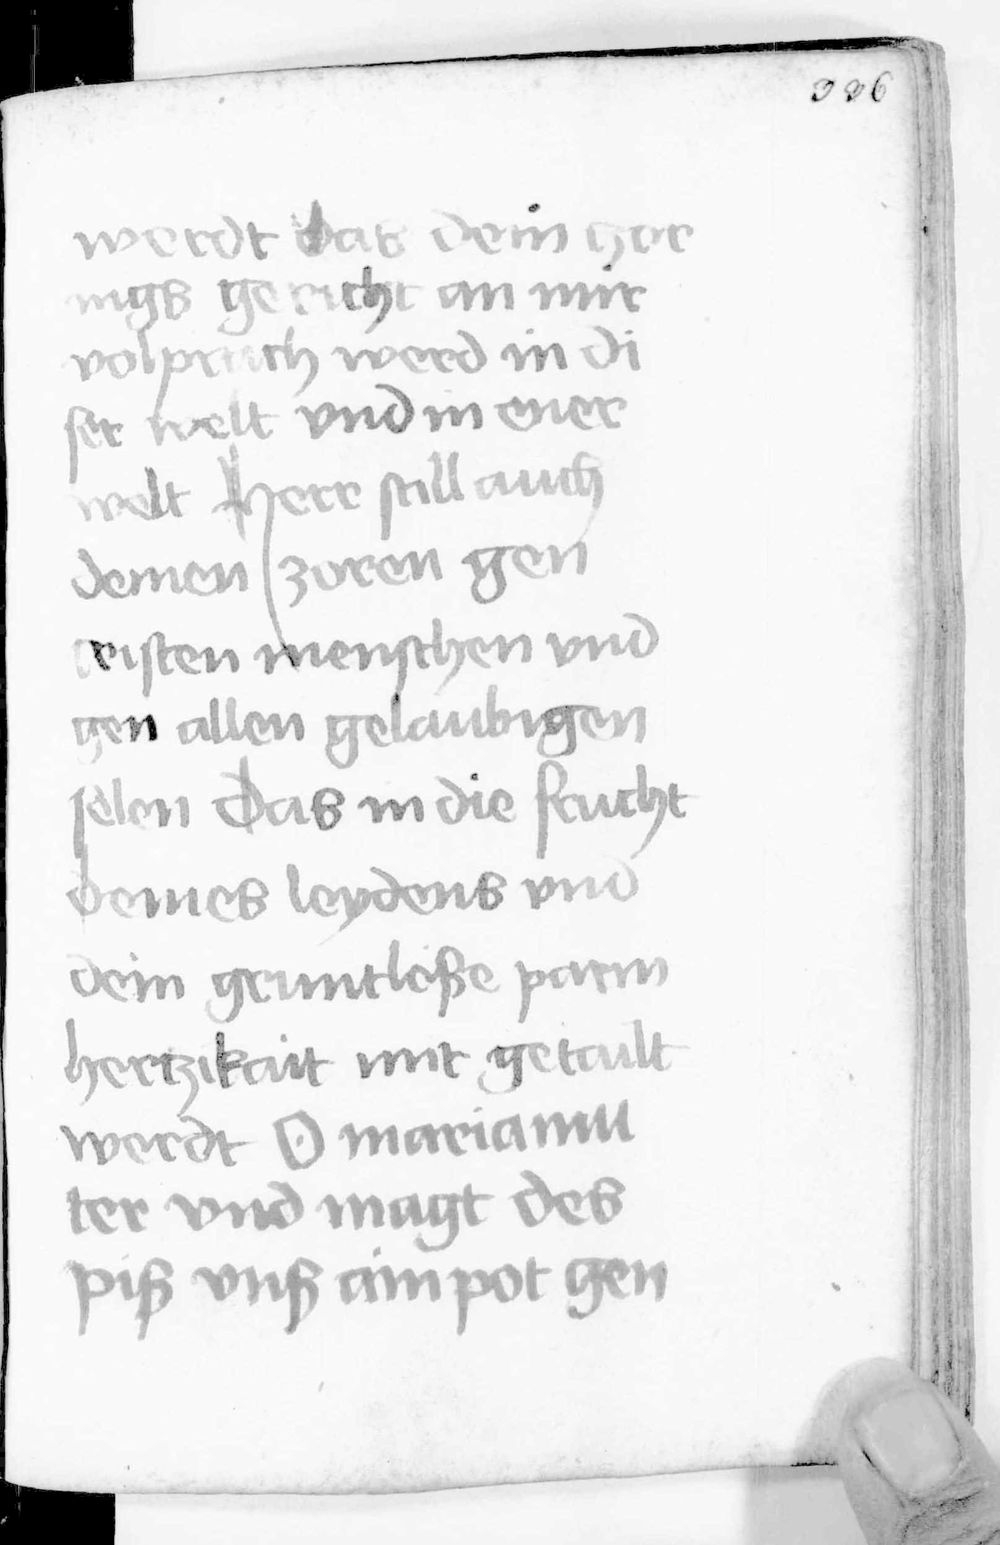 336
werdt das dein zor
nigs gericht an mir
volpracht werd in di
ser welt vnd in ener
welt Herr still auch
deinen zoren gen
cristen menschen vnd
gen allen gelaubigen
selen das in die frucht
deines leydens vnd
dein gruntloße parm
hertzikait mit getailt
werdt O maria mu
ter vnd magt des
piß vnß ain pot gen